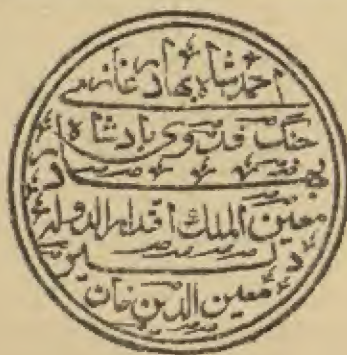 احمد شاه بهادر غازی
جنگ فدوی بادشاه
بهادر
معین الملک اقتدار الدوله
معین الدین خان